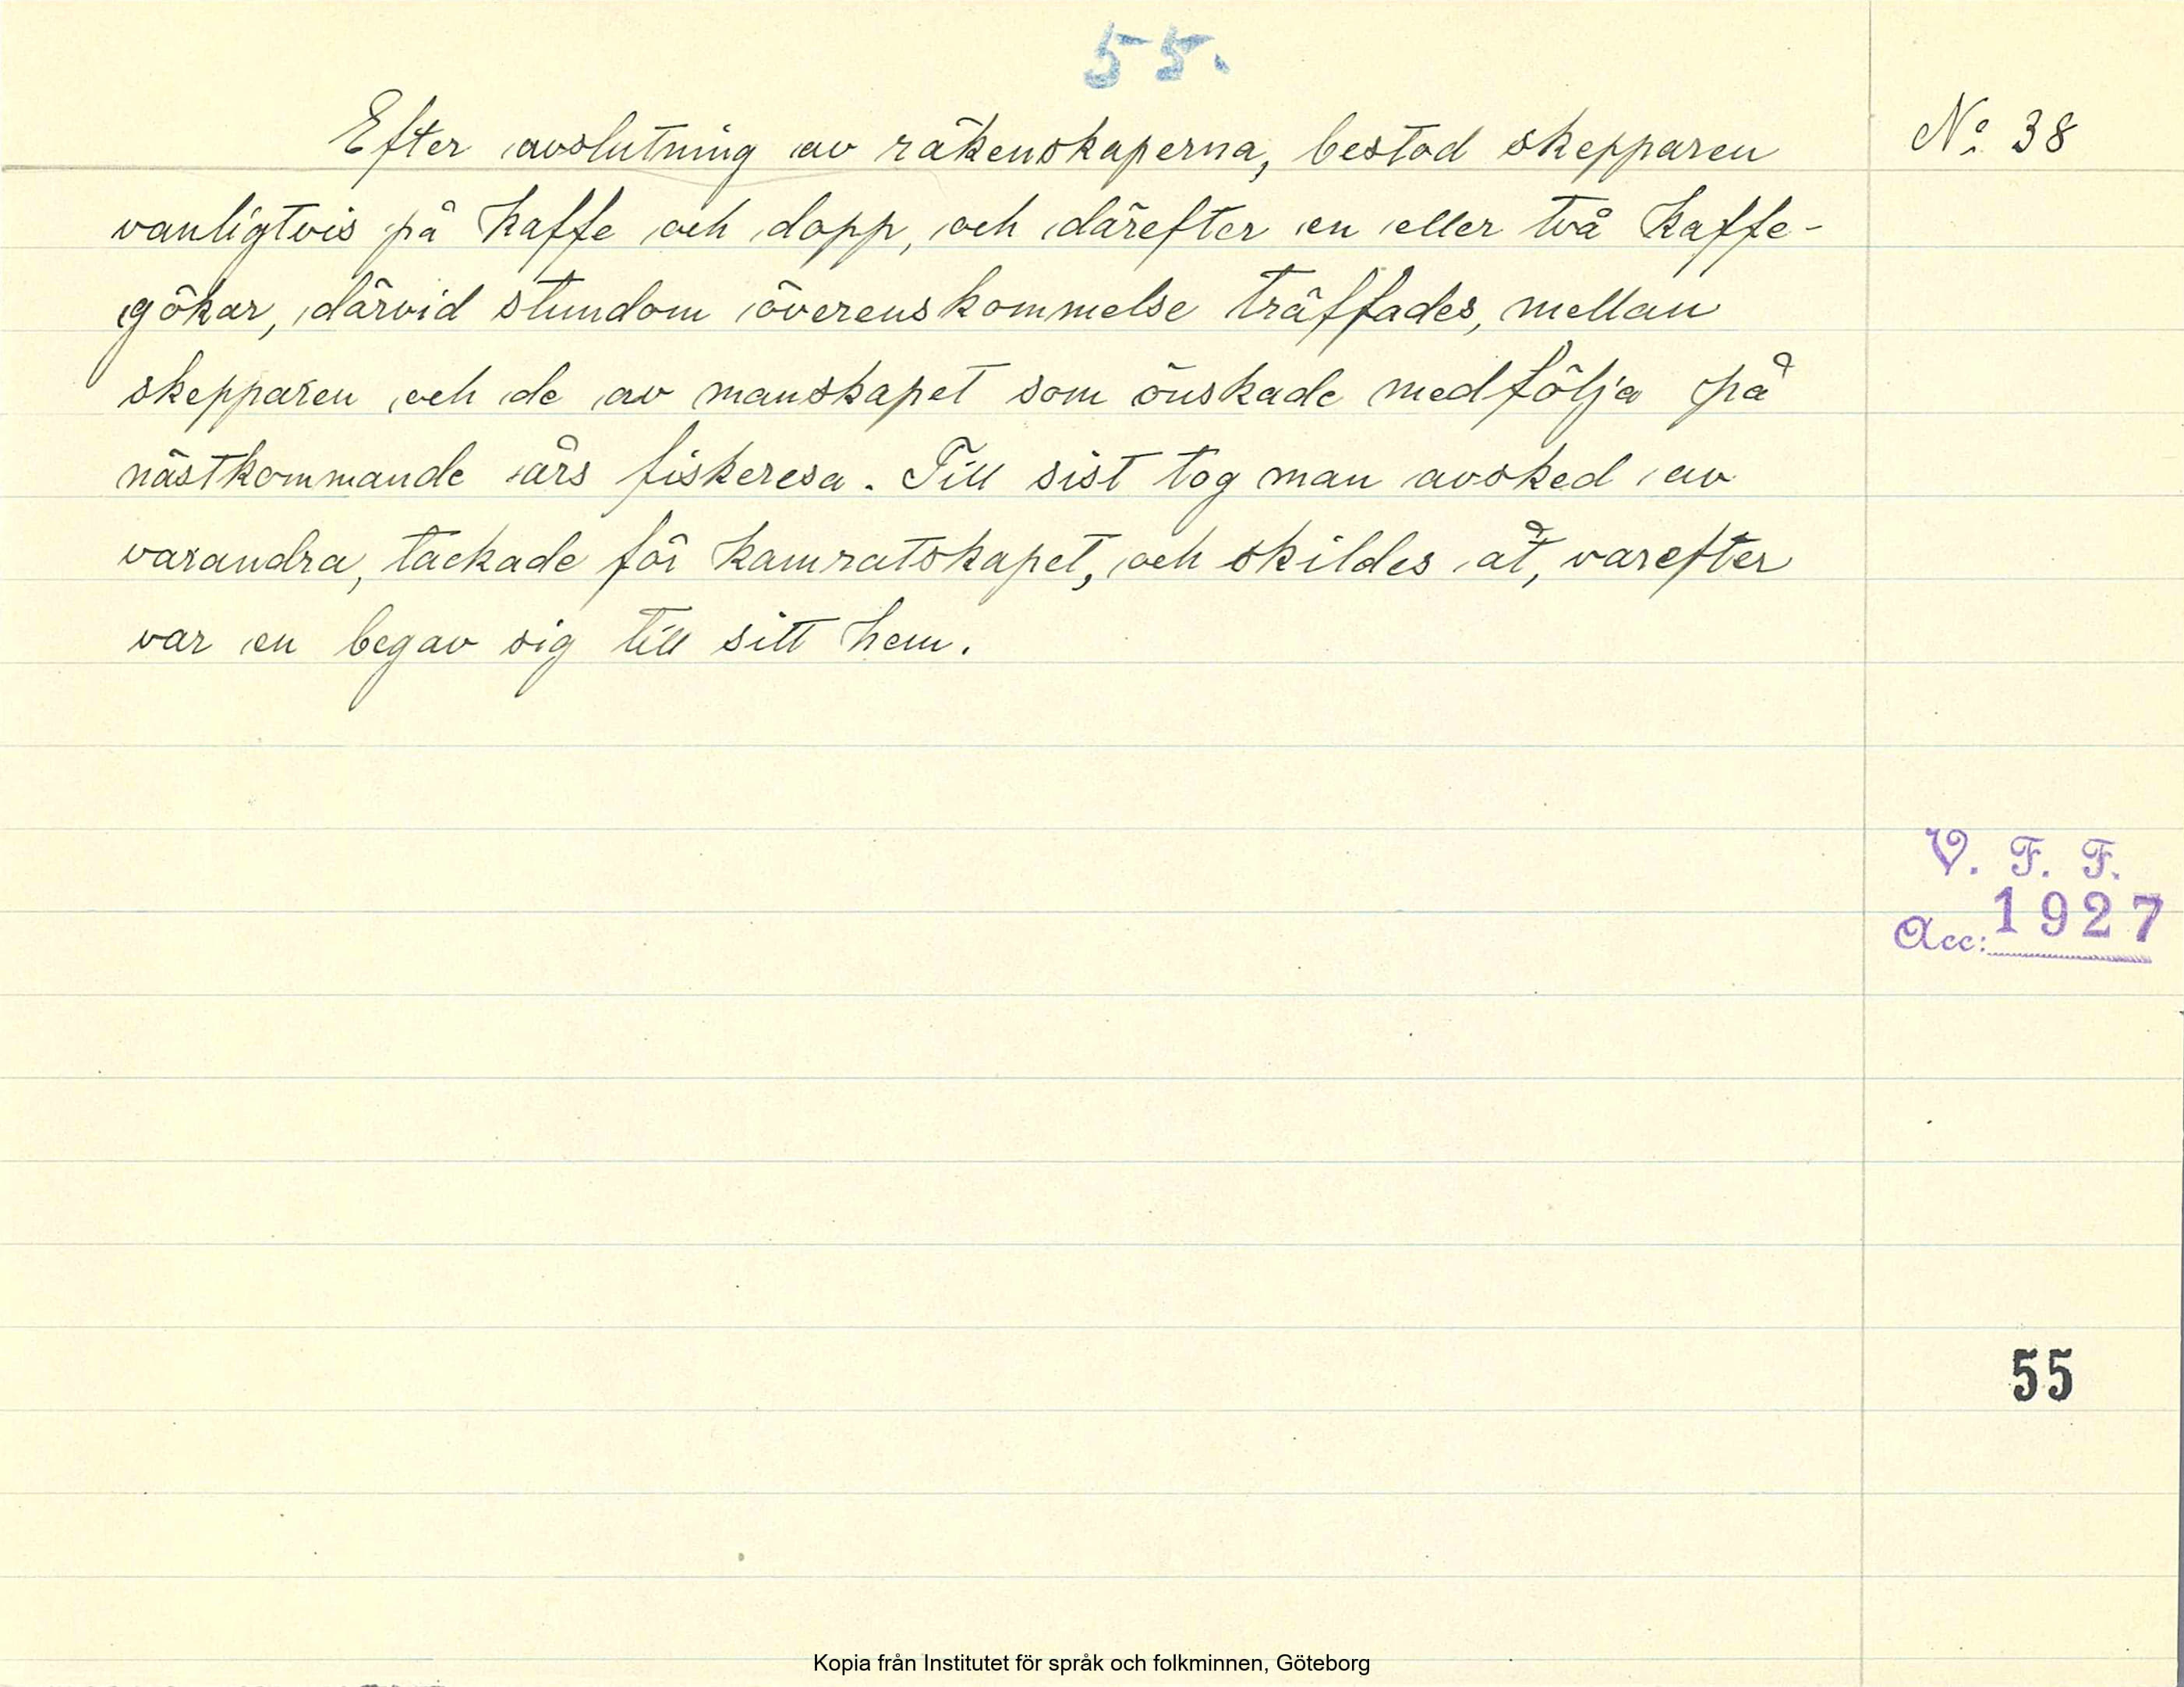 55.
Efter avslutning av räkenskaperna, bestod skepparen
vanligtvis på kaffe och dopp, och därefter en eller två kaffe-
gökar, därvid stundom överenskommelse träffades, mellan
skepparen och de av manskapet som önskade medfölja på
nästkommande års fiskeresa. Till sist tog man avsked av
varandra, tackade för kamratskapet, och skildes åt, varefter
var en begav sig till sitt hem.
No 38
V. F. F.
Acc: 1927
55
Kopia från Institutet för språk och folkminnen, Göteborg